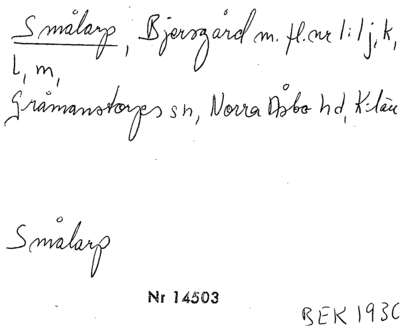 Smålarp, Bjersgård m. fl. nr 1:1 j, k,
l, m,
Gråmanstorps sn, Norra Åsbo hd, K:län
Smålarp
Nr 14503
BEK 1930